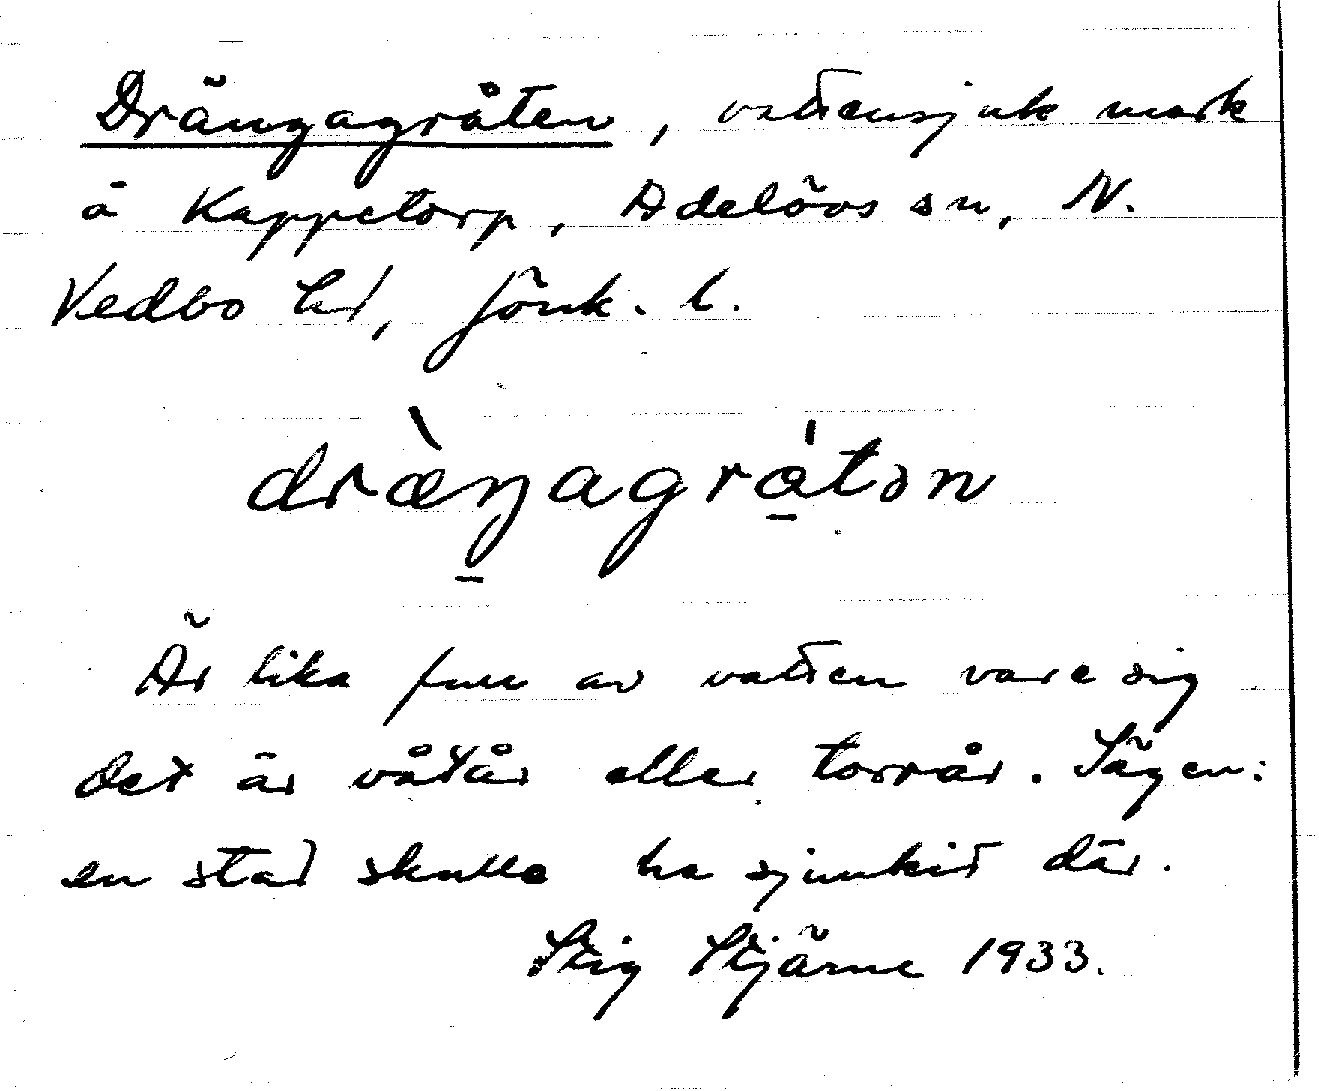 Drängagråten, vattensjuk mark
å Kappetorp, Adelövs sn, N.
Vedbo hd, Jönk. l.
dræ̀ŋagrǻtən
Är lika full av vatten vare sig
det är våtår eller torrår. Sägen:
en stad skulle ha sjunkit där.
Stig Stjärne 1933.